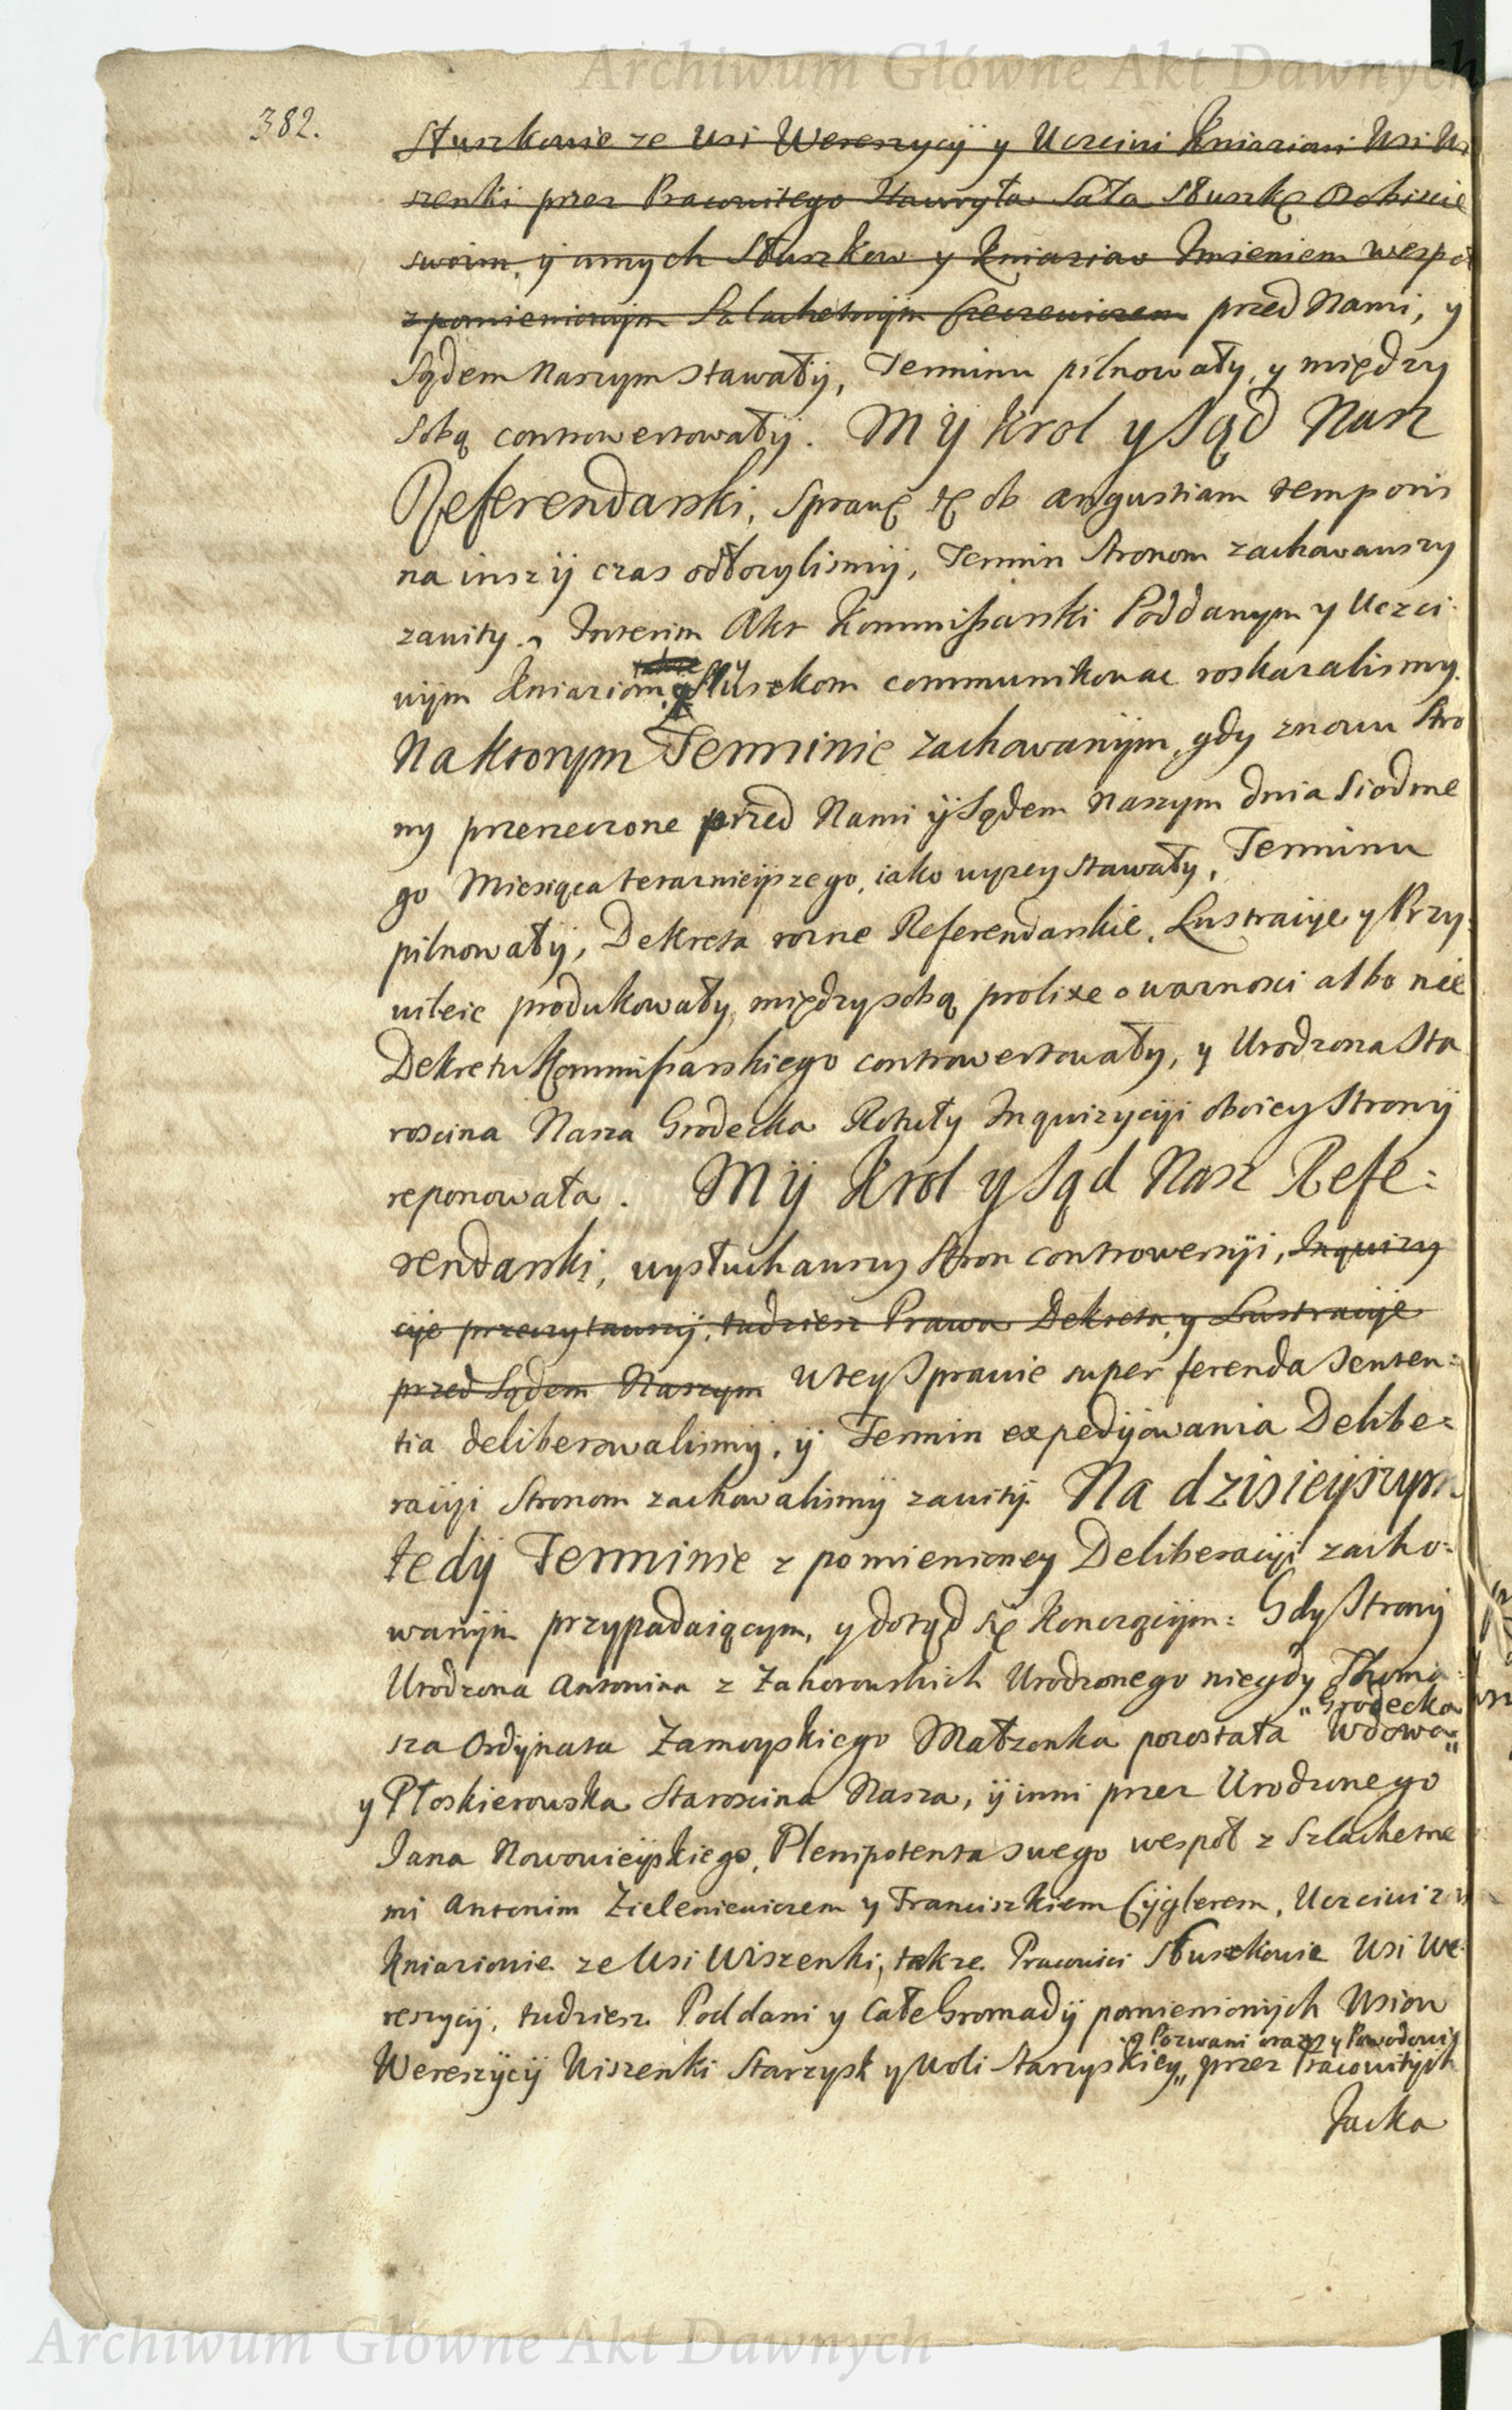 Archiwum Główne Akt Dawnych
382.
Słuszkowie ze Wsi Wereszycÿ y Uczciwi Kniaziowi Wsi Wi
szenki przez Pracowitego Hawryła Sała Słuszkę Osobiscie
swoim, y innych Słuszkow y Kniaziow Imieniem wespoł
z pomienionÿm Szlachetnÿm przed Nami, y
Sądem Naszym stawałÿ, Terminu pilnowały, y między
sobą controwertowałÿ. MŸ Krol y Sąd Nasz
Referendarski, Sprawę tę ob angustiam temporis
na inszÿ czas odłozylismÿ, Termin Stronom zachowawszy
zawity. Interim Akt Kommissarski Poddanym y Uczci
wÿm Kniaziom, y Słuszkom communikowac roskazalismy.
Na ktorym Terminie zachowanÿm, gdy znowu Stro
ny przerzeczone przed Nami ÿ Sądem Naszym dnia Siodme
go Miesiąca terazniejszego, iako wyzey stawały, Terminu
pilnowałÿ, Dekreta rozne Referendarskie, Lustracye y Przy:
wileie produkowały, między sobą prolixe o waznosci albo nie
Dekretu Kommissarskiego controwertowały, y Urodzona Sta
roscina Nasza Grodecka Rotuły Inquizycÿi oboiey Stronÿ
reponowała. MŸ Krol y Sąd Nasz Refe:
rendarski, wysłuchawszy Stron controwersÿi, Inquizy
cÿe przeczytawszÿ, tudziesz Prawa Dekreta, y Lustracÿe
przed Sądem Naszym w tey Sprawie super ferenda Senten:
tia deliberowalismÿ, ÿ Termin expedÿowania Delibe:
racÿi Stronom zachowalismÿ zawitÿ. Na dzisieÿszym
tedÿ Terminie z pomienioney Deliberacÿi zacho:
wanÿm przypadaiącym, y dotąd się konczącÿm: Gdy Stronÿ
Urodzona Antonina z Zahorowskich Urodzonego niegdy Thoma:
sza Ordÿnata Zamoyskiego Małzonka pozostała Wdowa „Grodecka„
y Płoskierowska Staroscina Nasza, ÿ inni przez Urodzonego
Jana Nowowieÿskiego, Plenipotenta swego wespoł z Szlachetne
mi Antonim Zieleniewiczem y Franciszkiem Cÿglerem, Uczciwi zas
Kniaziowie ze Wsi Wiszenki, takze Pracowici Słuszkowie Wsi We:
reszycÿ, tudziesz Poddani y Całe Gromadÿ pomienionÿch Wsiow
Wereszÿcÿ Wiszenki Starzysk y Woli Starzyskiey„ Pozwani oraz y Powodowie przez Pracowitÿch
Jacka
Archiwum Główne Akt Dawnych